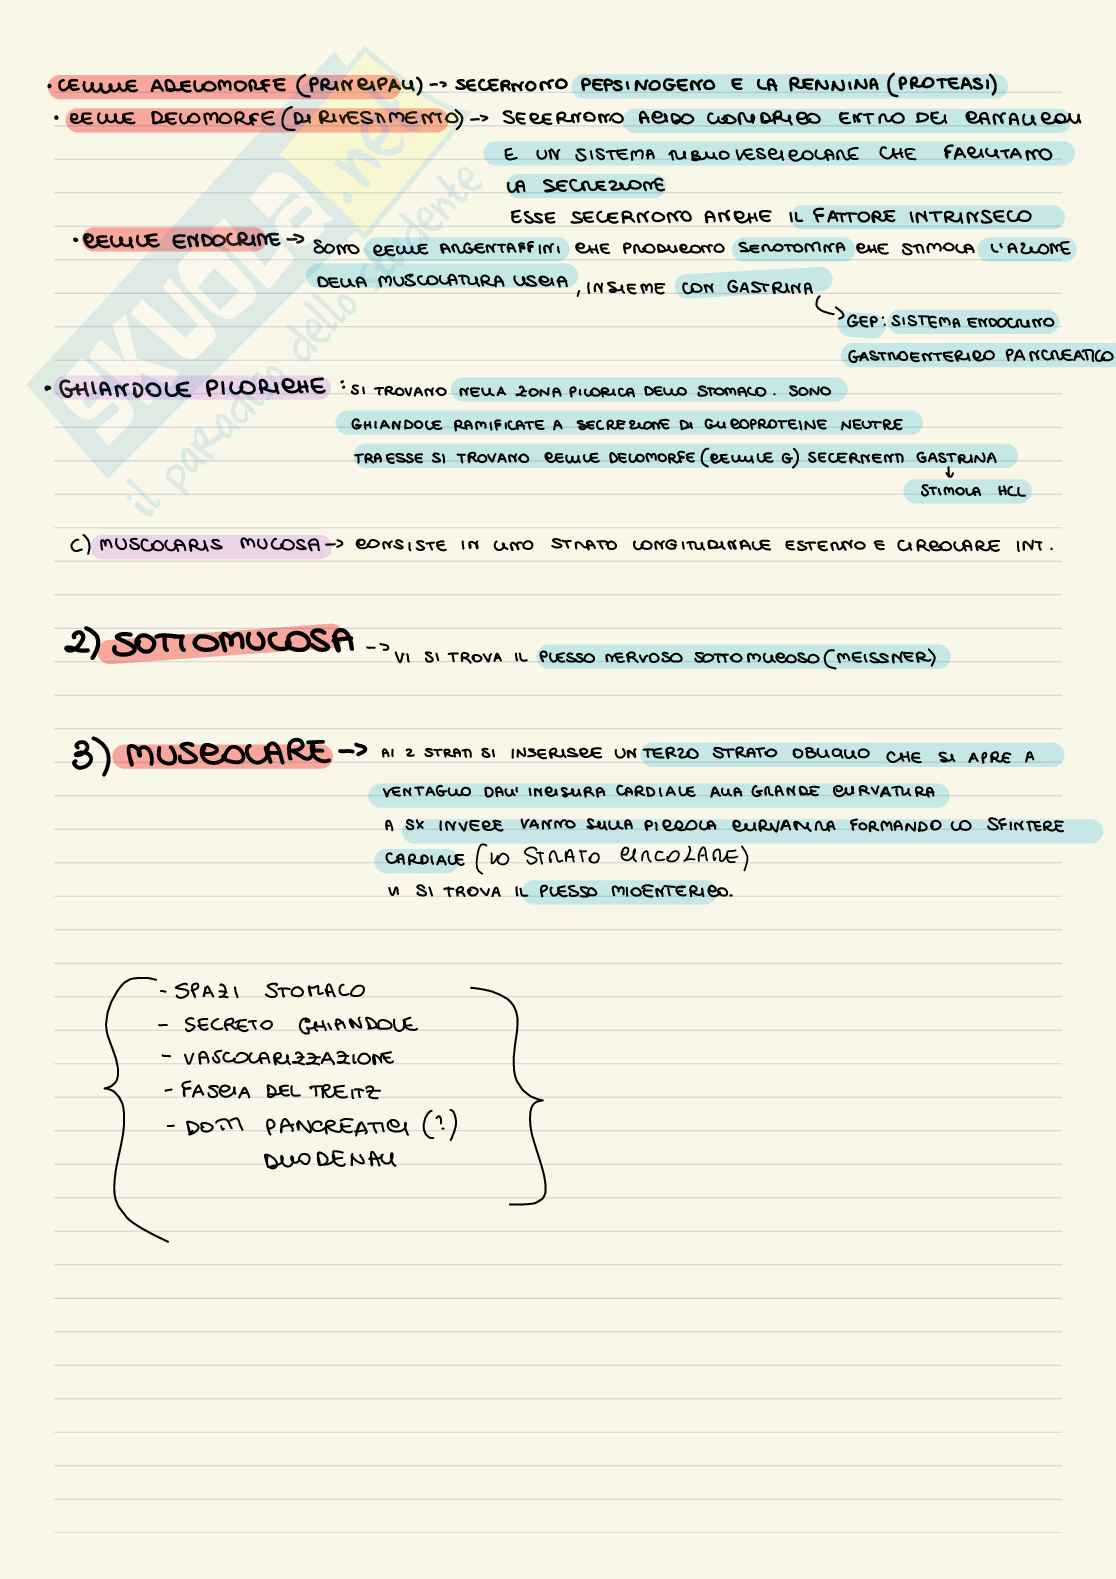 • CELLULE ADELOMORFE (PRINCIPALI) -> SECERNONO PEPSINOGENO E LA RENNINA (PROTEASI)
• CELLULE DELOMORFE (DI RIVESTIMENTO) -> SECERNONO ACIDO CLORIDRICO ENTRO DEI CANALICOLI
E UN SISTEMA TUBULOVESCICOLARE CHE FACILITANO
LA SECREZIONE
ESSE SECERNONO ANCHE IL FATTORE INTRINSECO
• CELLULE ENDOCRINE -> SONO CELLULE ARGENTAFFINI CHE PRODUCONO SEROTONINA CHE STIMOLA L'AZIONE
DELLA MUSCOLATURA LISCIA, INSIEME CON GASTRINA
GEP: SISTEMA ENDOCRINO
GASTROENTERICO PANCREATICO
• GHIANDOLE PILORICHE : SI TROVANO NELLA ZONA PILORICA DELLO STOMACO. SONO
GHIANDOLE RAMIFICATE A SECREZIONE DI GLICOPROTEINE NEUTRE
TRA ESSE SI TROVANO CELLULE DELOMORFE (CELLULE G) SECERNENTI GASTRINA
↓
STIMOLA HCL
C) MUSCOLARIS MUCOSA -> CONSISTE IN UNO STRATO LONGITUDINALE ESTERNO E CIRCOLARE INT.
2) SOTTOMUCOSA -> VI SI TROVA IL PLESSO NERVOSO SOTTOMUCOSO (MEISSNER)
3) MUSCOLARE -> AI 2 STRATI SI INSERISCE UN TERZO STRATO OBLIQUO CHE SI APRE A
VENTAGLIO DALL'INCISURA CARDIALE ALLA GRANDE CURVATURA
A SX INVECE VANNO SULLA PICCOLA CURVATURA FORMANDO LO SFINTERE
CARDIALE (LO STRATO CIRCOLARE)
VI SI TROVA IL PLESSO MIOENTERICO.
- SPAZI STOMACO
- SECRETO GHIANDOLE
- VASCOLARIZZAZIONE
- FASCIA DEL TREITZ
- DOTTI PANCREATICI (?)
DUODENALI
SKUOLA.net
il paradiso dello studente